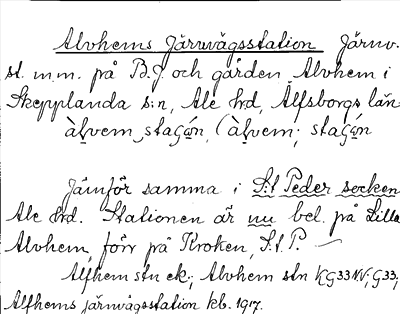 Alvhems Järnvägsstation Järnv.
st. m.m. på B.J. och gården Alvhem i
Skepplanda s:n, Ale hd, Älfsborgs län
àḷvem, staʃón, (àḷvem; staʃón
Jämför samma i S:t Peder socken
Ale hd. Stationen är nu bel. på Lilla
Alvhem, förr på Kroken, S:t P.
Alfhem stn ek; Alvhem stn KG33KV; G33;
Alfhems järnvägsstation kb. 1917.